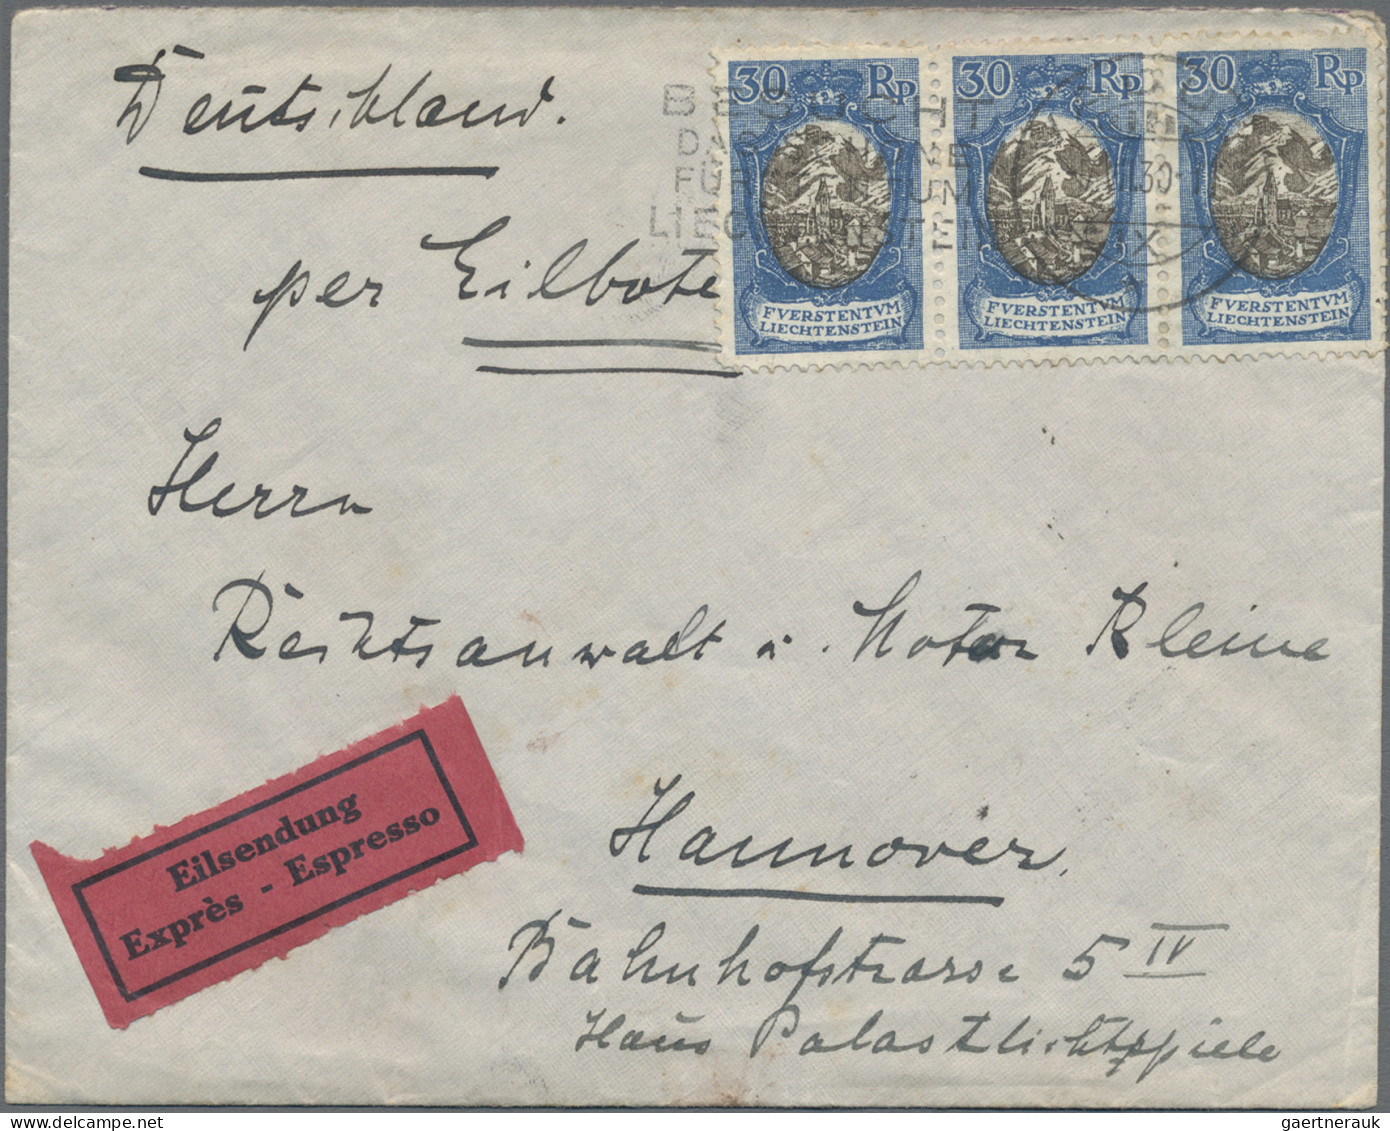 Deutschland.
per Eilbote
30 Rp
FVERSTENTVM
LIECHTENSTEIN
30 Rp
FVERSTENTVM
LIECHTENSTEIN
30 Rp
FVERSTENTVM
LIECHTENSTEIN
BESUCHT
DAS
FÜR
LIECHTENSTEIN
Herrn
Rechtsanwalt u. Notar Kleine
Hannover,
Bahnhofstrasse 5 IV
Haus Palastlichtspiele
Eilsendung
Exprès - Espresso
gaertnerauk